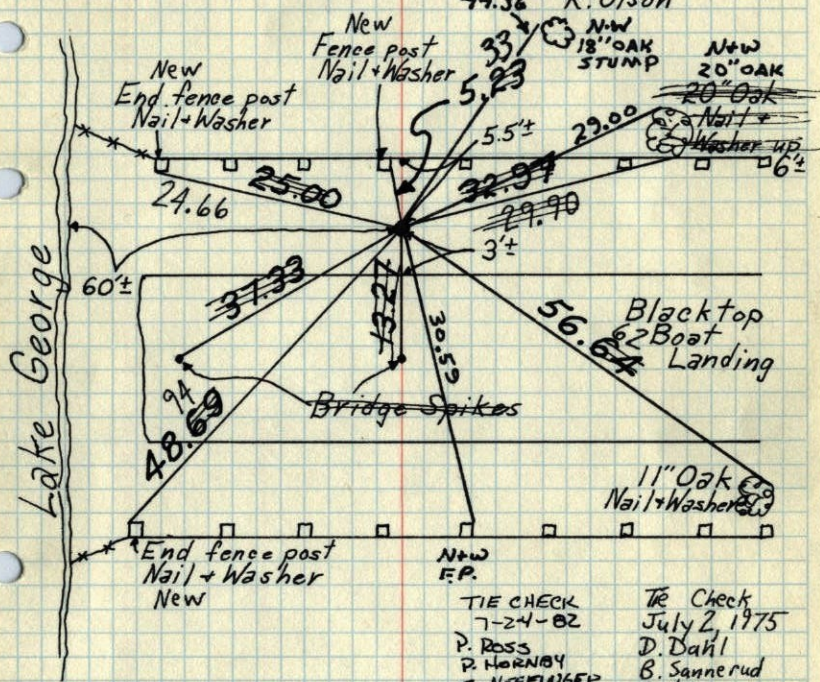 44.36
R. Olson
New
Fence post
Nail + Washer
N+W
18" OAK
STUMP
N+W
20" OAK
20" Oak
Nail +
Washer up
6'±
New
End fence post
Nail + Washer
33
5.23
5.5'±
29.00
25.00
24.66
32.97
29.90
60'±
3'±
37.33
13.27
30.59
56.64
62
Blacktop
Boat
Landing
Lake George
94
48.69
Bridge Spikes
11" Oak
Nail + Washer
End fence post
Nail + Washer
New
N+W
F.P.
TIE CHECK
7-24-82
P. ROSS
P. HORNBY
Tie Check
July 2, 1975
D. Dahl
B. Sannerud